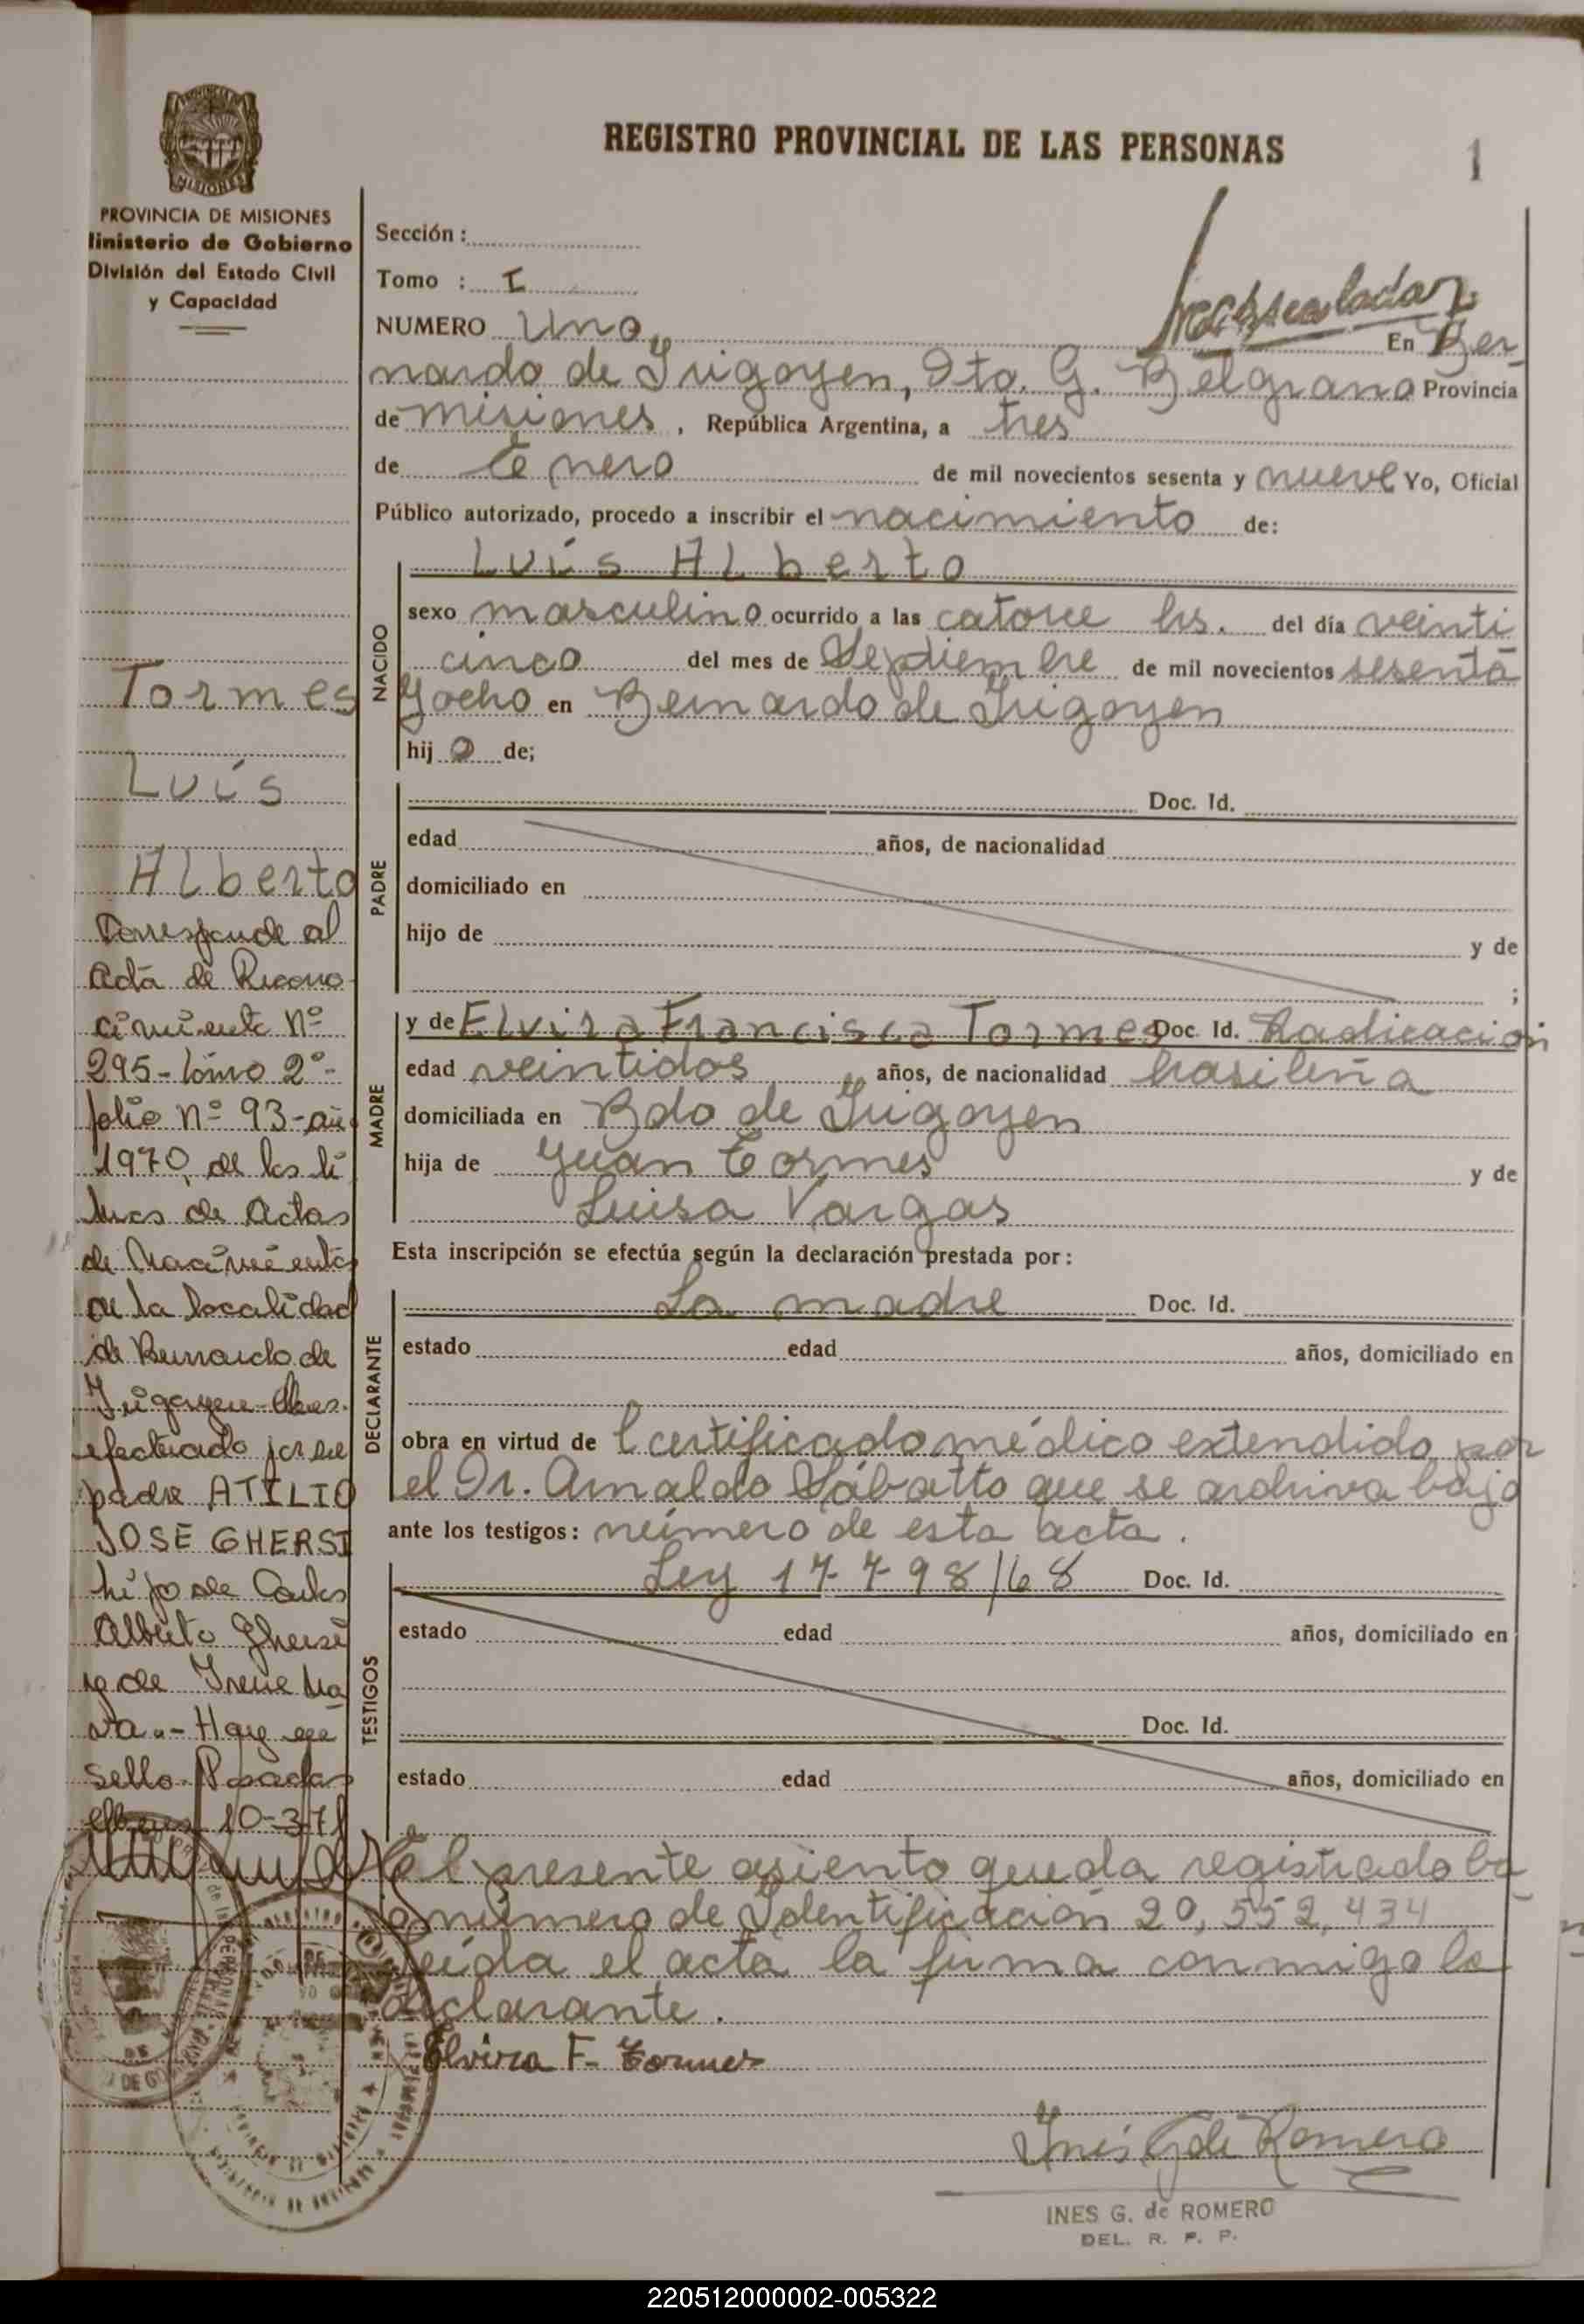 REGISTRO PROVINCIAL DE LAS PERSONAS
1
PROVINCIA DE MISIONES
Ministerio de Gobierno
División del Estado Civil
y Capacidad
Sección :
Tomo : I
NUMERO Uno En Ber-
nardo de Irigoyen, Dto. G. Belgrano Provincia
de misiones , República Argentina, a tres
de Enero de mil novecientos sesenta y nueve Yo, Oficial
Público autorizado, procedo a inscribir el nacimiento de:
NACIDO
Luis Alberto
sexo masculino ocurrido a las catorce hs. del día veinti
cinco del mes de Septiembre de mil novecientos sesenta
y ocho en Bernardo de Irigoyen
hijo de;
PADRE
Doc. Id.
edad años, de nacionalidad
domiciliado en
hijo de y de
;
MADRE
y de Elvira Francisca Tormes Doc. Id. Radicación
edad veintidos años, de nacionalidad brasileña
domiciliada en Bdo de Irigoyen
hija de Juan Tormes y de
Luisa Vargas
Esta inscripción se efectúa según la declaración prestada por :
DECLARANTE
La madre Doc. Id.
estado edad años, domiciliado en
obra en virtud de l certificado médico extendido por
el Dr. Arnaldo Sábatto que se archiva bajo
ante los testigos : número de esta acta .
TESTIGOS
Ley 17798/68 Doc. Id.
estado edad años, domiciliado en
Doc. Id.
estado edad años, domiciliado en
El presente asiento queda registrado ba-
jo número de Identificación 20,552,434
Leida el acta la firma conmigo la
declarante .
Elvira F. Tormes
Ines G de Romero
INES G. de ROMERO
DEL. R. P. P.
Tormes
Luis
Alberto
Corresponde al
Acta de Recono-
cimiento Nº
295- tomo 2º-
folio Nº 93- año
1970, de los li
bros de Actas
de Nacimientos
de la localidad
de Bernardo de
Irigoyen
efectuado por su
padre ATILIO
JOSE GHERSI
hijo de Carlos
Alberto Ghersi
y de Irene Na
va.- Hay
sello. Posadas
10-3-71
220512000002-005322